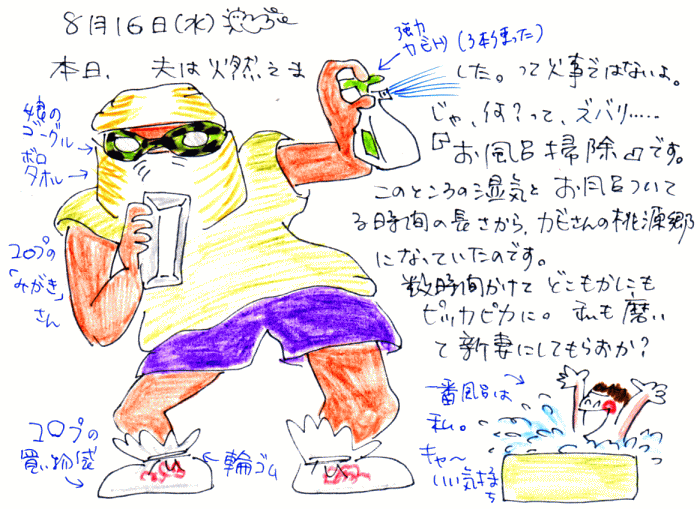 8月16日(水)
本日、夫は燃えま
した。って火事ではないよ。
じゃ、何?って、ズバリ……
『お風呂掃除』です。
このところの湿気と お風呂ついて
る時間の長さから、カビさんの桃源郷
になっていたのです。
数時間かけて どこもかしこも
ピッカピカに。私も磨い
て新妻にしてもらおか?
強力
カビトリ (3本使った)
娘の
ゴーグル
ボロ
タオル
コロプの
「みがき」
さん
コロプの
買い物袋
輪ゴム
一番風呂は
私。
キャ〜
いい気持ち